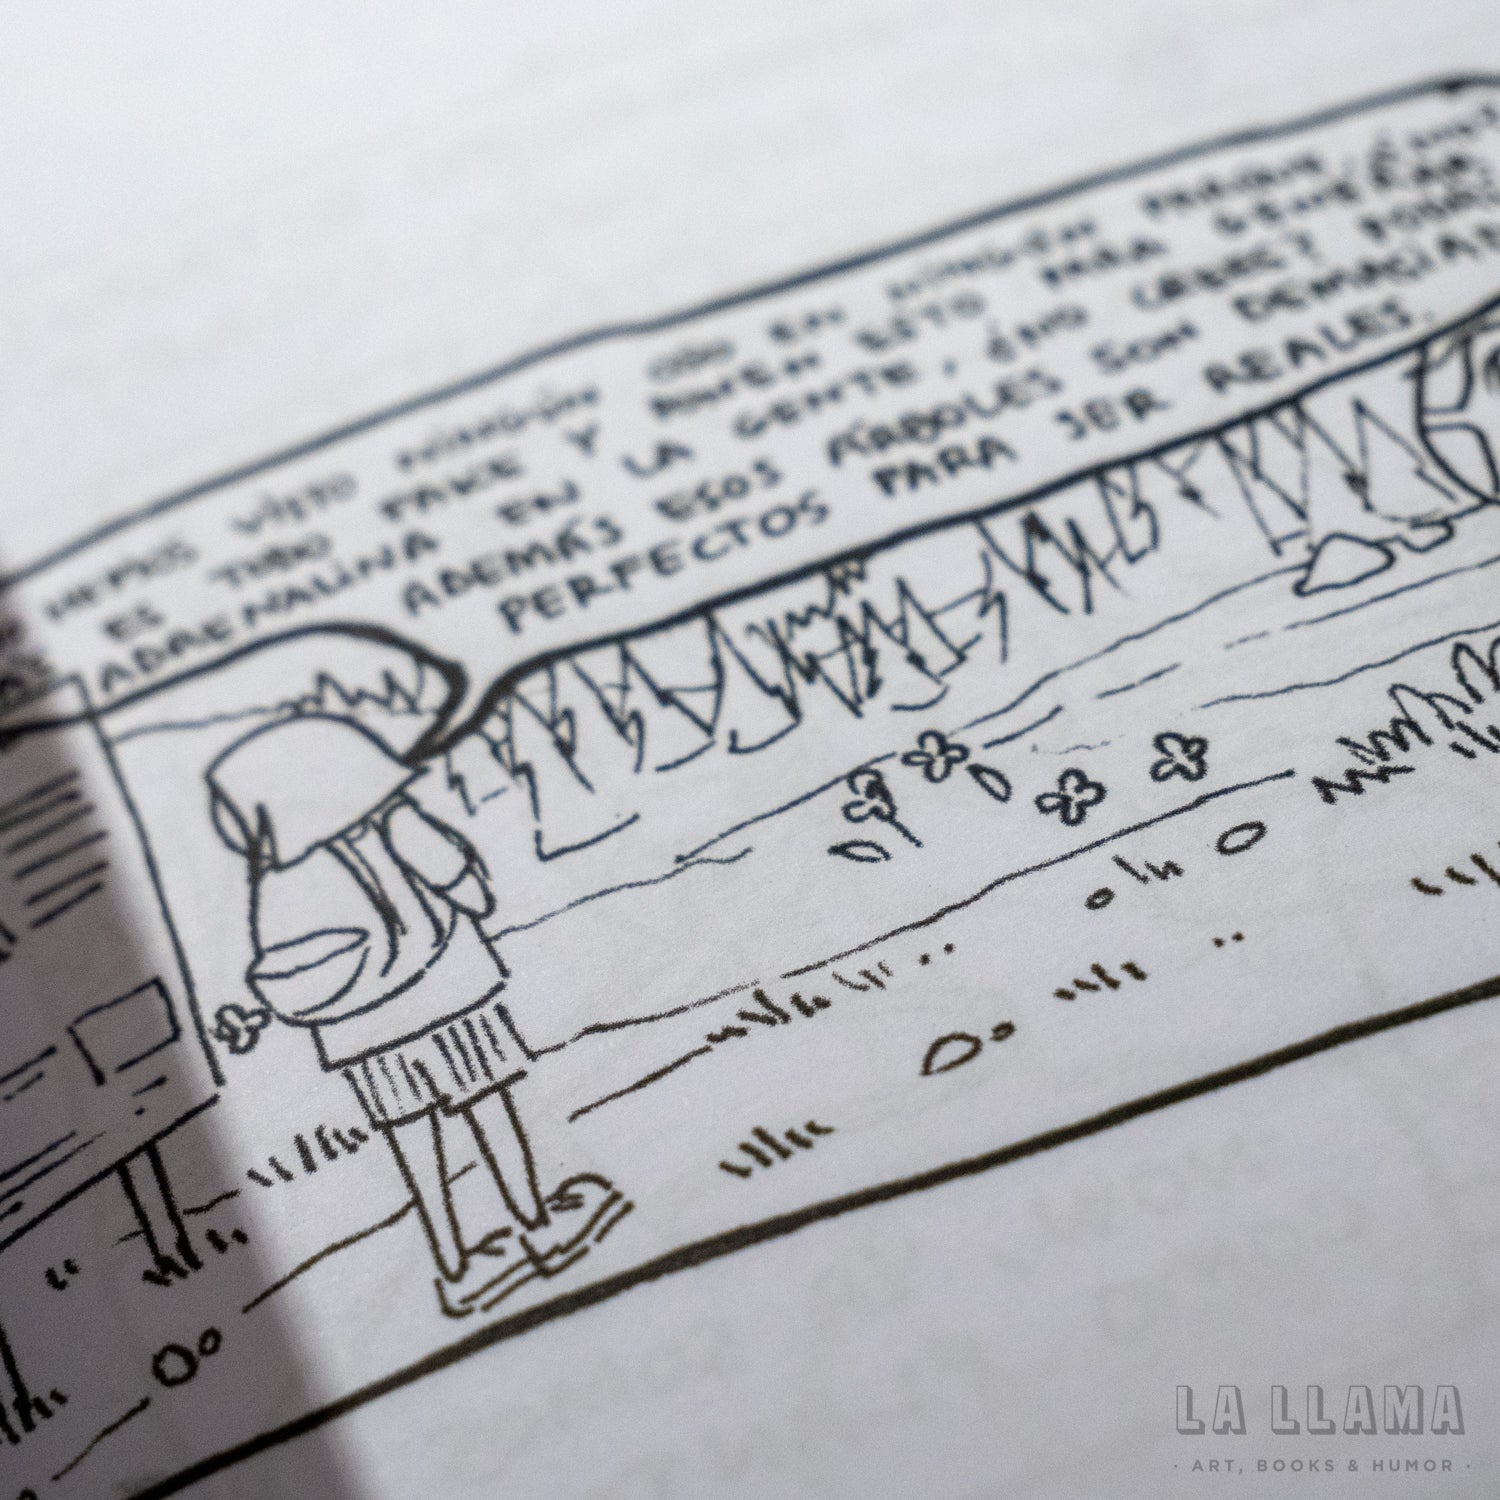 HEMOS VISTO NINGÚN OSO EN NINGÚN PARQUE,
ES TODO FAKE Y PONEN ESTO PARA GENERAR
ADRENALINA EN LA GENTE, ¿NO CREES?
ADEMÁS ESOS ÁRBOLES SON
PERFECTOS PARA SER REALES.
LA LLAMA
· ART, BOOKS & HUMOR ·